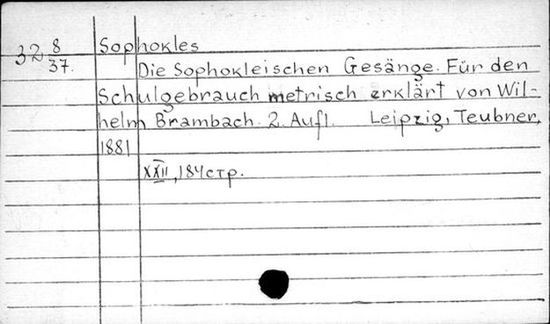 32 8/37. Sophokles
Die Sophokleischen Gesänge. Für den
Schulgebrauch metrisch erklärt von Wil-
helm Brambach. 2. Aufl. Leipzig, Teubner,
1881
XXII, 184 стр.